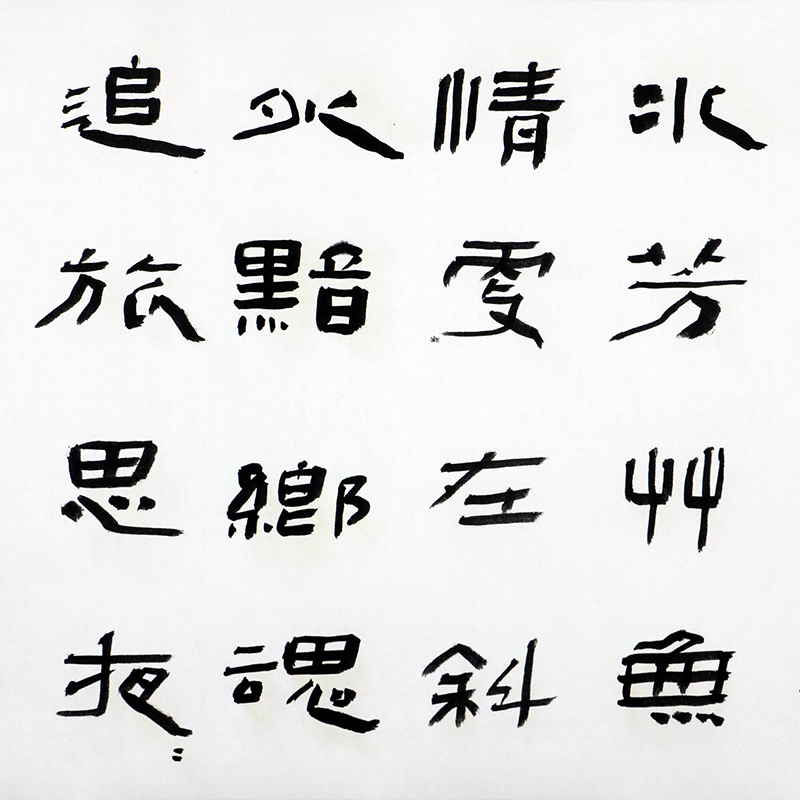 水芳艸無
情更在斜
外黯鄉魂
追旅思夜〻